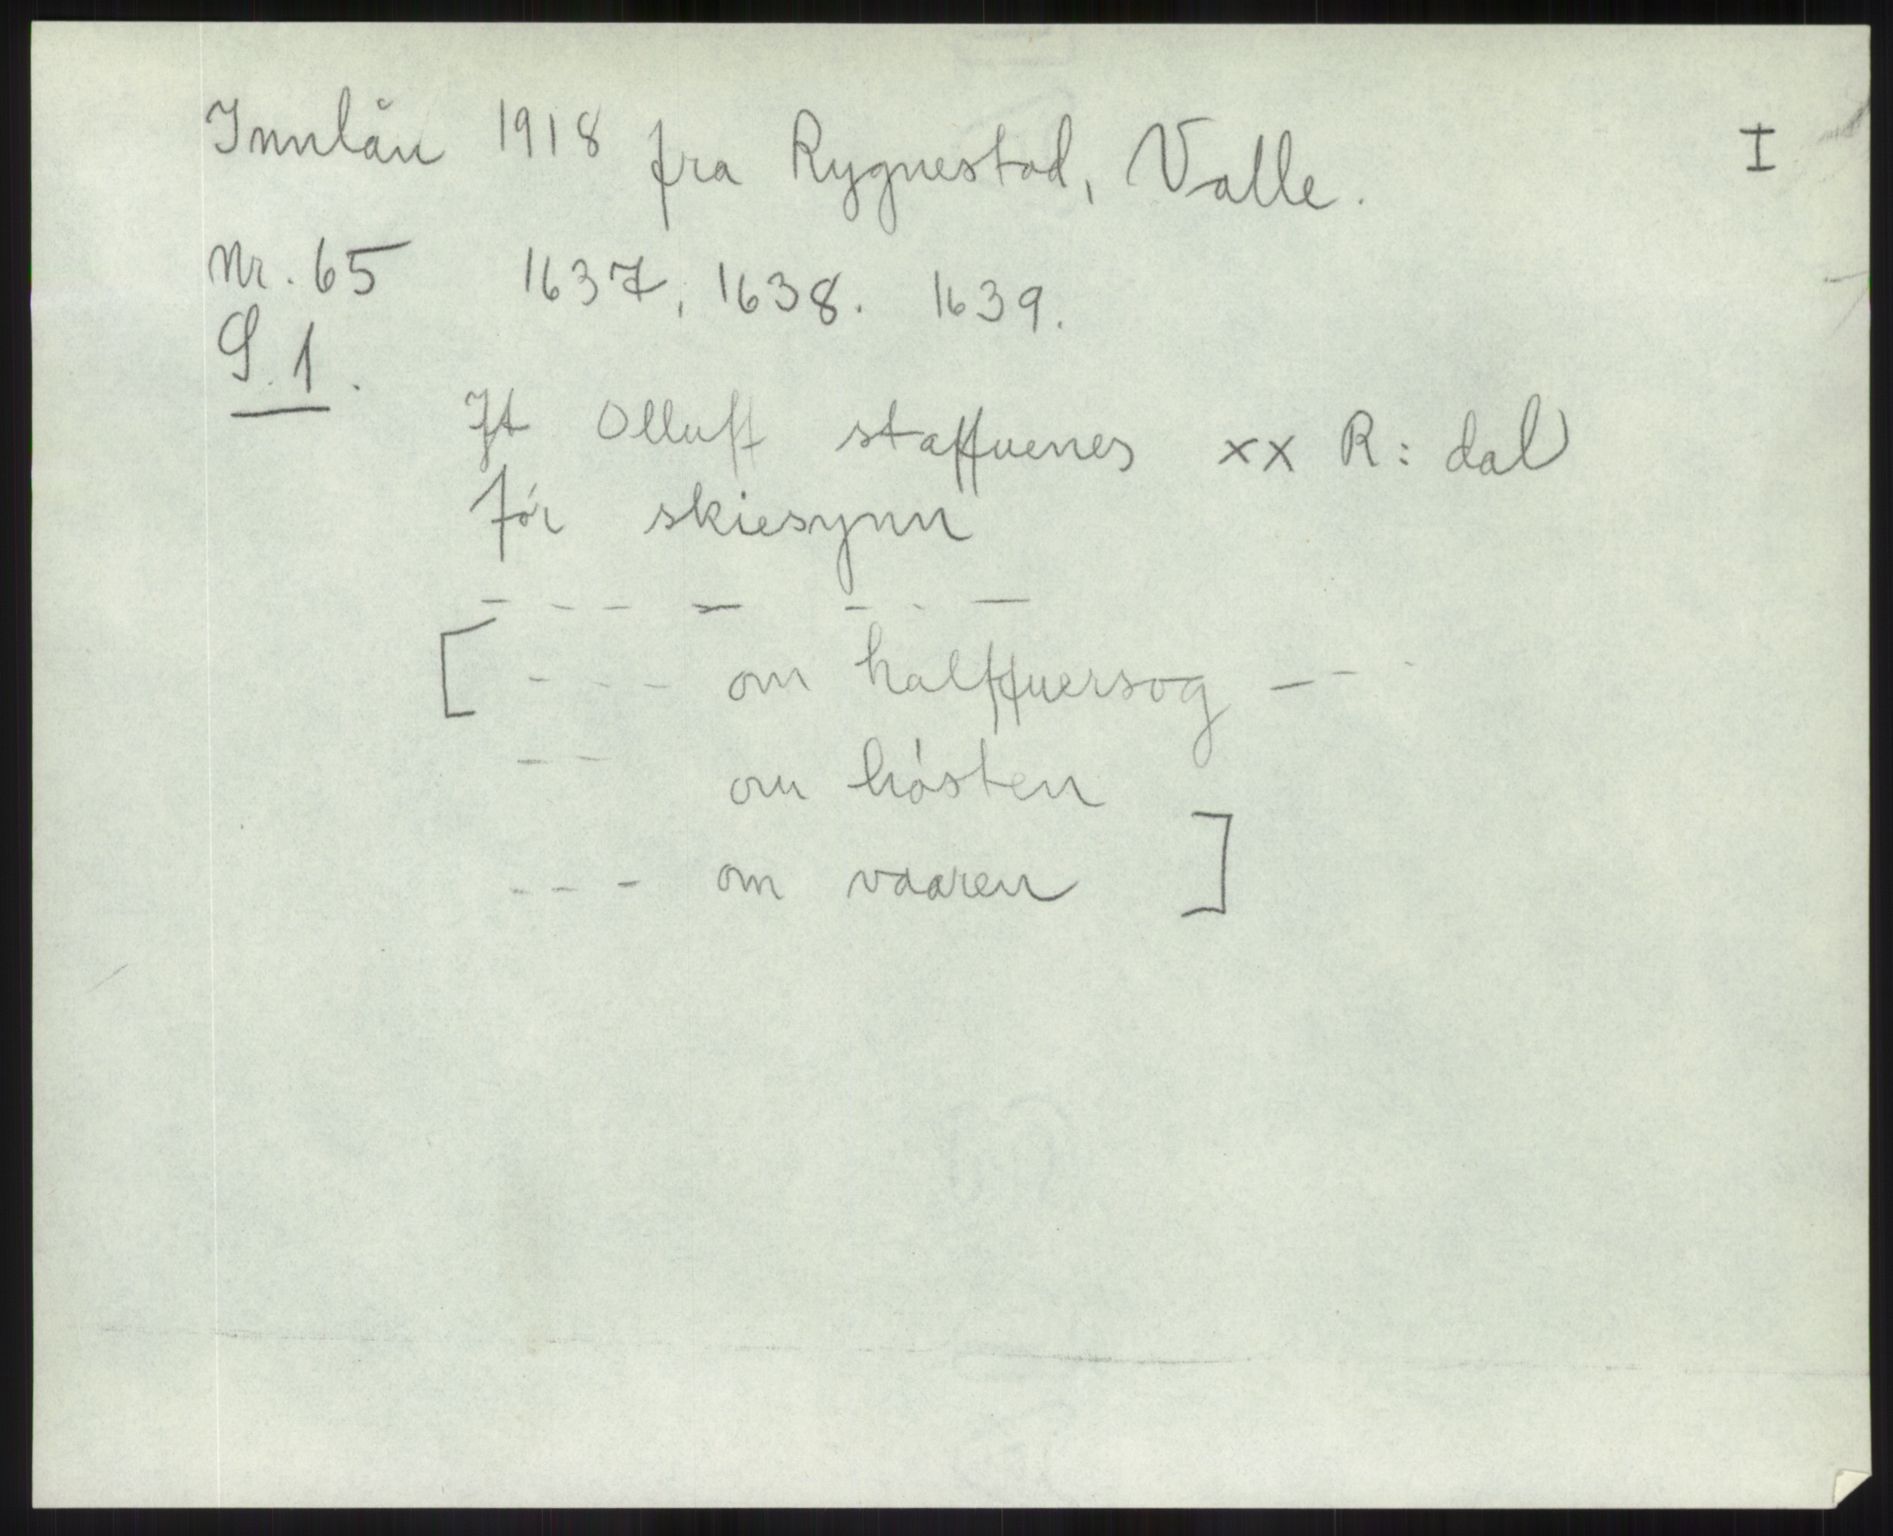 Innlån 1918 fra Rygnestad, Valle. I
Nr. 65 1637, 1638. 1639.
S. 1.
It Olluff staffuenes xx R: dal
får skiesynn
- - - - - - -
[ - - - om halffuersog - - -
- - om hósten
- - - om vaaren ]